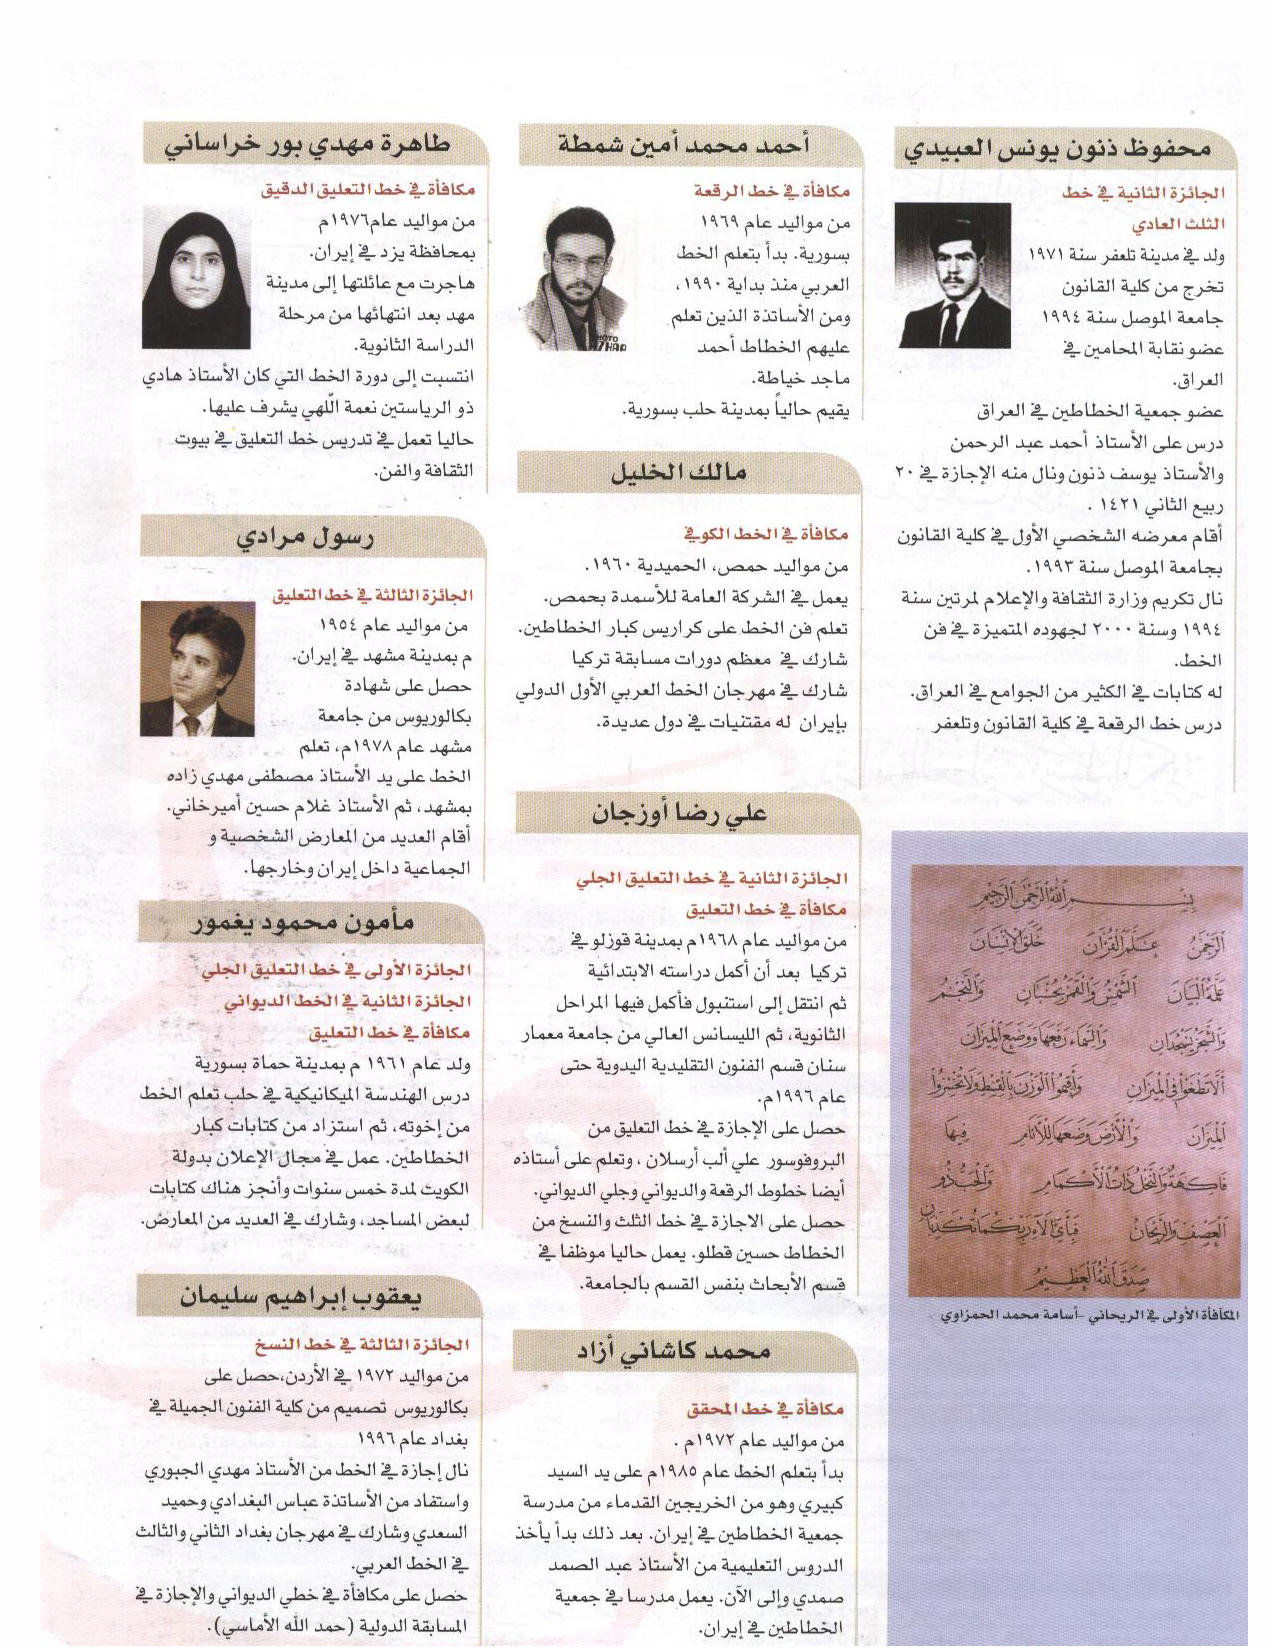 محفوظ ذنون يونس العبيدي
الجائزة الثانية في خط
الثلث العادي
ولد في مدينة تلعفر سنة ١٩٧١
تخرج من كلية القانون
جامعة الموصل سنة ١٩٩٤
عضو نقابة المحامين في
العراق.
عضو جمعية الخطاطين في العراق
درس على الأستاذ أحمد عبد الرحمن
والأستاذ يوسف ذنون ونال منه الإجازة في ٢٠
ربيع الثاني ١٤٢١ .
أقام معرضه الشخصي الأول في كلية القانون
بجامعة الموصل سنة ١٩٩٣.
نال تكريم وزارة الثقافة والإعلام لمرتين سنة
١٩٩٤ وسنة ٢٠٠٠ لجهوده المتميزة في فن
الخط.
له كتابات في الكثير من الجوامع في العراق.
درس خط الرقعة في كلية القانون وتلعفر
بسم الله الرحمن الرحيم
الرحمن علم القرآن خلق الإنسان
علمه البيان الشمس والقمر بحسبان والنجم
والشجر يسجدان والسماء رفعها ووضع الميزان
ألا تطغوا في الميزان وأقيموا الوزن بالقسط ولا تخسروا
الميزان والأرض وضعها للأنام فيها
فاكهة والنخل ذات الأكمام والحب ذو
العصف والريحان فبأي آلاء ربكما تكذبان
صدق الله العظيم
المكافأة الأولى في الريحاني -أسامة محمد الحمزاوي
أحمد محمد أمين شمطة
مكافأة في خط الرقعة
من مواليد عام ١٩٦٩
بسورية. بدأ بتعلم الخط
العربي منذ بداية ١٩٩٠،
ومن الأساتذة الذين تعلم
عليهم الخطاط أحمد
ماجد خياطة.
يقيم حالياً بمدينة حلب بسورية.
مالك الخليل
مكافأة في الخط الكوفي
من مواليد حمص، الحميدية ١٩٦٠.
يعمل في الشركة العامة للأسمدة بحمص.
تعلم فن الخط على كراريس كبار الخطاطين.
شارك في معظم دورات مسابقة تركيا
شارك في مهرجان الخط العربي الأول الدولي
بإيران له مقتنيات في دول عديدة.
علي رضا أوزجان
الجائزة الثانية في خط التعليق الجلي
مكافأة في خط التعليق
من مواليد عام ١٩٦٨م بمدينة قوزلو في
تركيا بعد أن أكمل دراسته الابتدائية
ثم انتقل إلى استنبول فأكمل فيها المراحل
الثانوية، ثم الليسانس العالي من جامعة معمار
سنان قسم الفنون التقليدية اليدوية حتى
عام ١٩٩٦م.
حصل على الإجازة في خط التعليق من
البروفوسور علي ألب أرسلان ، وتعلم على أستاذه
أيضا خطوط الرقعة والديواني وجلي الديواني.
حصل على الاجازة في خط الثلث والنسخ من
الخطاط حسين قطلو. يعمل حاليا موظفا في
قسم الأبحاث بنفس القسم بالجامعة.
محمد كاشاني أزاد
مكافأة في خط المحقق
من مواليد عام ١٩٧٢م .
بدأ بتعلم الخط عام ١٩٨٥م على يد السيد
كبيري وهو من الخريجين القدماء من مدرسة
جمعية الخطاطين في إيران. بعد ذلك بدأ يأخذ
الدروس التعليمية من الأستاذ عبد الصمد
صمدي وإلى الآن. يعمل مدرسا في جمعية
الخطاطين في إيران.
طاهرة مهدي بور خراساني
مكافأة في خط التعليق الدقيق
من مواليد عام١٩٧٦م
بمحافظة يزد في إيران.
هاجرت مع عائلتها إلى مدينة
مهد بعد انتهائها من مرحلة
الدراسة الثانوية.
انتسبت إلى دورة الخط التي كان الأستاذ هادي
ذو الرياستين نعمة اللّهي يشرف عليها.
حاليا تعمل في تدريس خط التعليق في بيوت
الثقافة والفن.
رسول مرادي
الجائزة الثالثة في خط التعليق
من مواليد عام ١٩٥٤
م بمدينة مشهد في إيران.
حصل على شهادة
بكالوريوس من جامعة
مشهد عام ١٩٧٨م، تعلم
الخط على يد الأستاذ مصطفى مهدي زاده
بمشهد، ثم الأستاذ غلام حسين أميرخاني.
أقام العديد من المعارض الشخصية و
الجماعية داخل إيران وخارجها.
مأمون محمود يغمور
الجائزة الأولى في خط التعليق الجلي
الجائزة الثانية في الخط الديواني
مكافأة في خط التعليق
ولد عام ١٩٦١ م بمدينة حماة بسورية
درس الهندسة الميكانيكية في حلب تعلم الخط
من إخوته، ثم استزاد من كتابات كبار
الخطاطين. عمل في مجال الإعلان بدولة
الكويت لمدة خمس سنوات وأنجز هناك كتابات
لبعض المساجد، وشارك في العديد من المعارض.
يعقوب إبراهيم سليمان
الجائزة الثالثة في خط النسخ
من مواليد ١٩٧٢ في الأردن،حصل على
بكالوريوس تصميم من كلية الفنون الجميلة في
بغداد عام ١٩٩٦
نال إجازة في الخط من الأستاذ مهدي الجبوري
واستفاد من الأساتذة عباس البغدادي وحميد
السعدي وشارك في مهرجان بغداد الثاني والثالث
في الخط العربي.
حصل على مكافأة في خطي الديواني والإجازة في
المسابقة الدولية (حمد الله الأماسي).